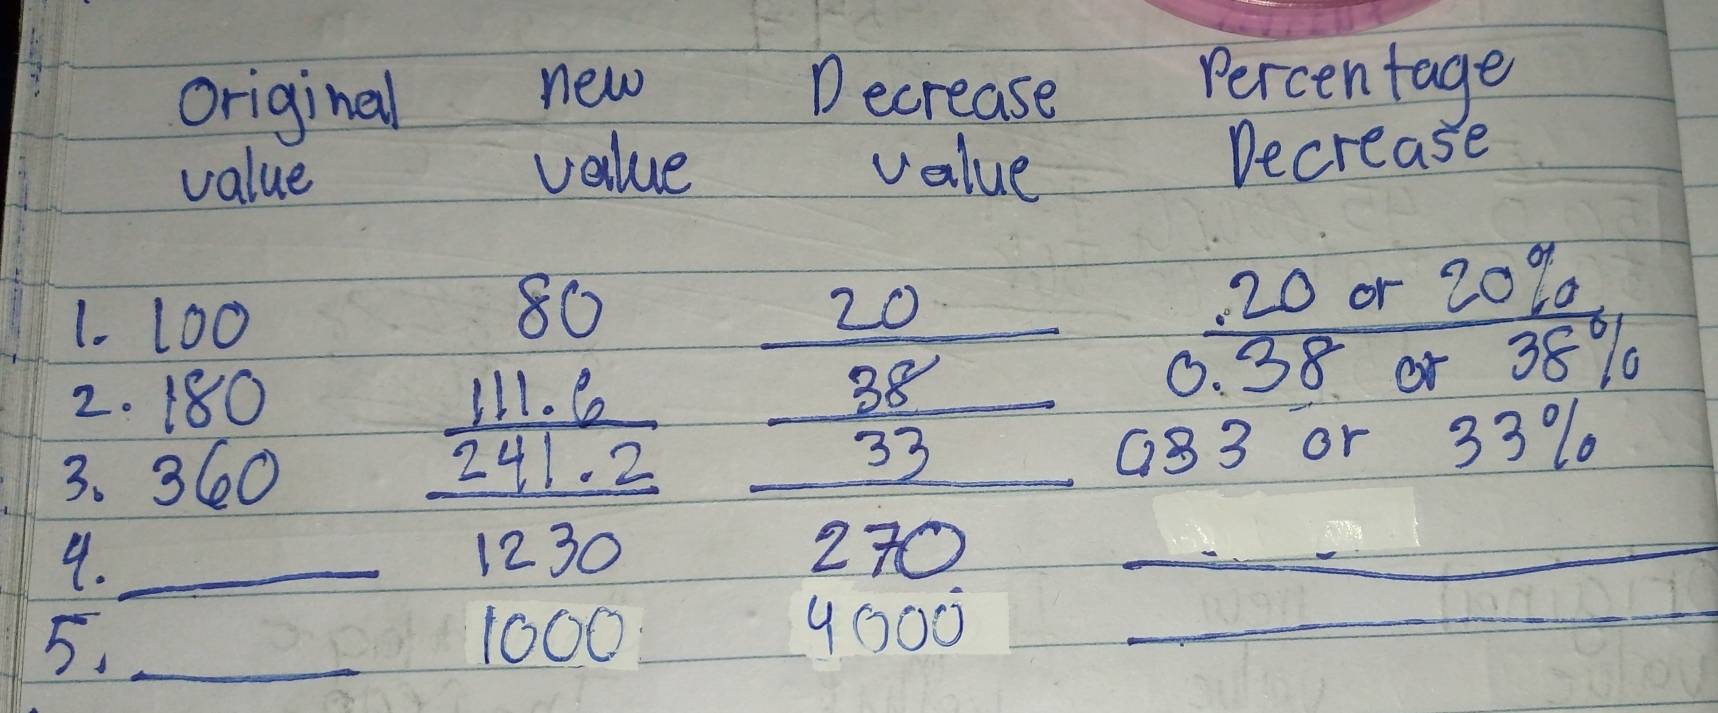 Original new Decrease Percentage
value value value Decrease
1. 100 80 20 .20 or 20%
2. 180 111.6 38 0.38 or 38%
3. 360 241.2 33 033 or 33%
4. 1230 270
5. 1000 4000